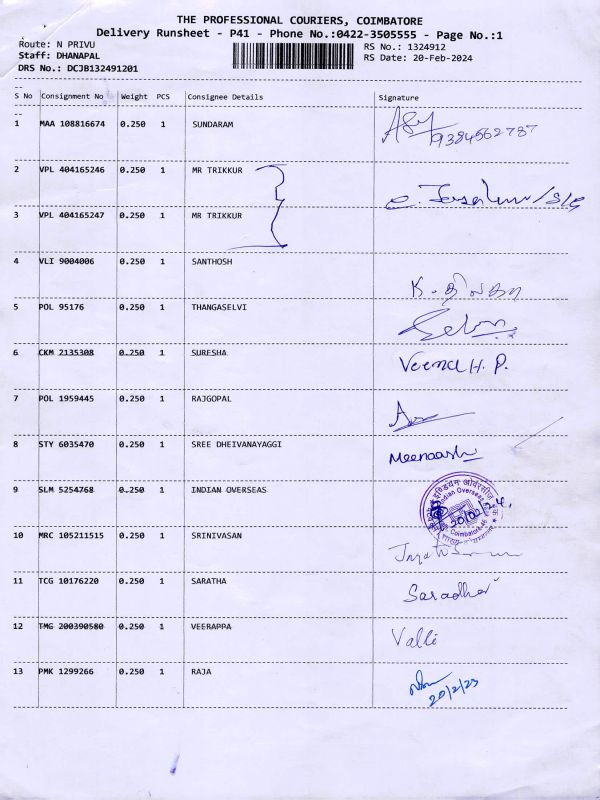 THE PROFESSIONAL COURIERS, COIMBATORE
Delivery Runsheet - P41 - Phone No.:0422-3505555 - Page No.:1
Route: N PRIVU
Staff: DHANAPAL
DRS No.: DCJB132491201
RS No.: 1324912
RS Date: 20-Feb-2024
S No Consignment No Weight PCS Consignee Details Signature
1 MAA 108816674 0.250 1 SUNDARAM 9384562787
2 VPL 404165246 0.250 1 MR TRIKKUR
3 VPL 404165247 0.250 1 MR TRIKKUR
4 VLI 9004006 0.250 1 SANTHOSH
5 POL 95176 0.250 1 THANGASELVI
6 CKM 2135308 0.250 1 SURESHA Veena H. P.
7 POL 1959445 0.250 1 RAJGOPAL
8 STY 6035470 0.250 1 SREE DHEIVANAYAGGI Meenaashi
9 SLM 5254768 0.250 1 INDIAN OVERSEAS इण्डियन ओवरसीज Indian Overseas 20/02/24 Coimbatore
10 MRC 105211515 0.250 1 SRINIVASAN
11 TCG 10176220 0.250 1 SARATHA
12 TMG 200390580 0.250 1 VEERAPPA Valli
13 PMK 1299266 0.250 1 RAJA 20/2/23